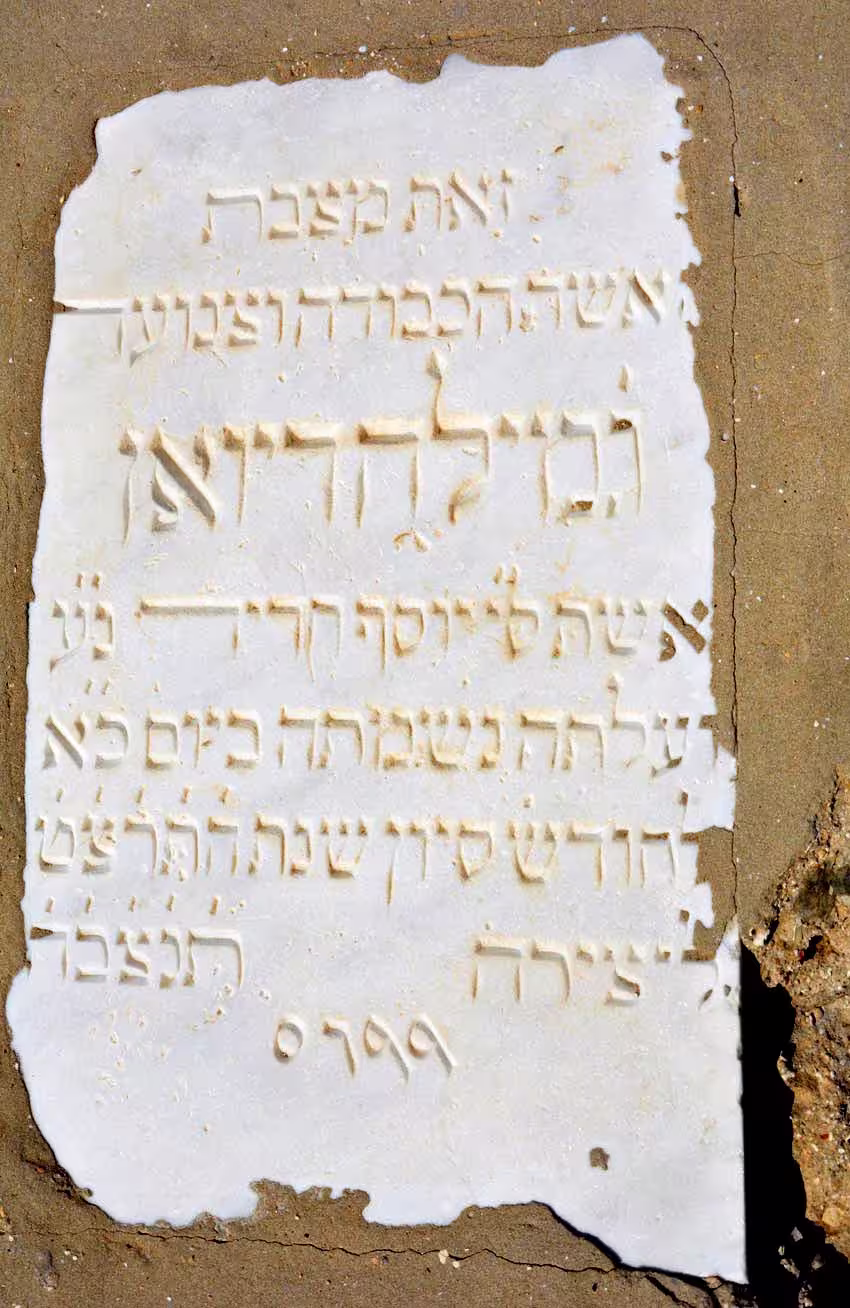 זאת מצבת
אשה הכבודה וצנועה
ג׳מיילה דיואן
אשת ס״י יוסף נ״ע
עלתה נשמתה ביום כ״א
לחודש סיון שנת התרצט
ליצירה תנצבה
٥٦٩٩